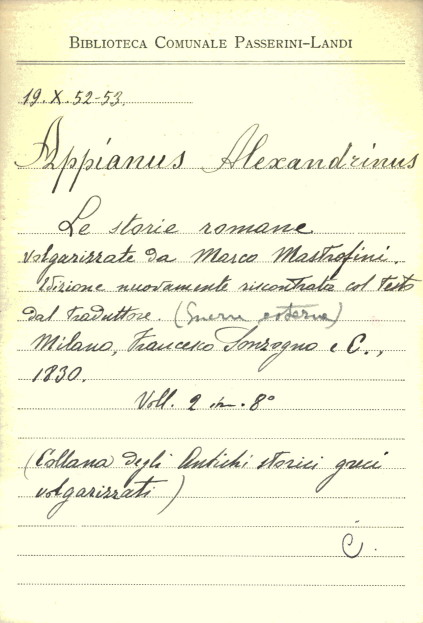 BIBLIOTECA COMUNALE PASSERINI-LANDI
19. X. 52-53.
Appianus Alexandrinus
Le storie romane
volgarizzate da Marco Mastrofini.
Edizione nuovamente riscontrata col testo
dal traduttore. (Guerre esterne)
Milano, Francesco Sonzogno e C.,
1830.
Voll. 2 in-8°
(Collana degli Antichi storici greci
volgarizzati)
C.